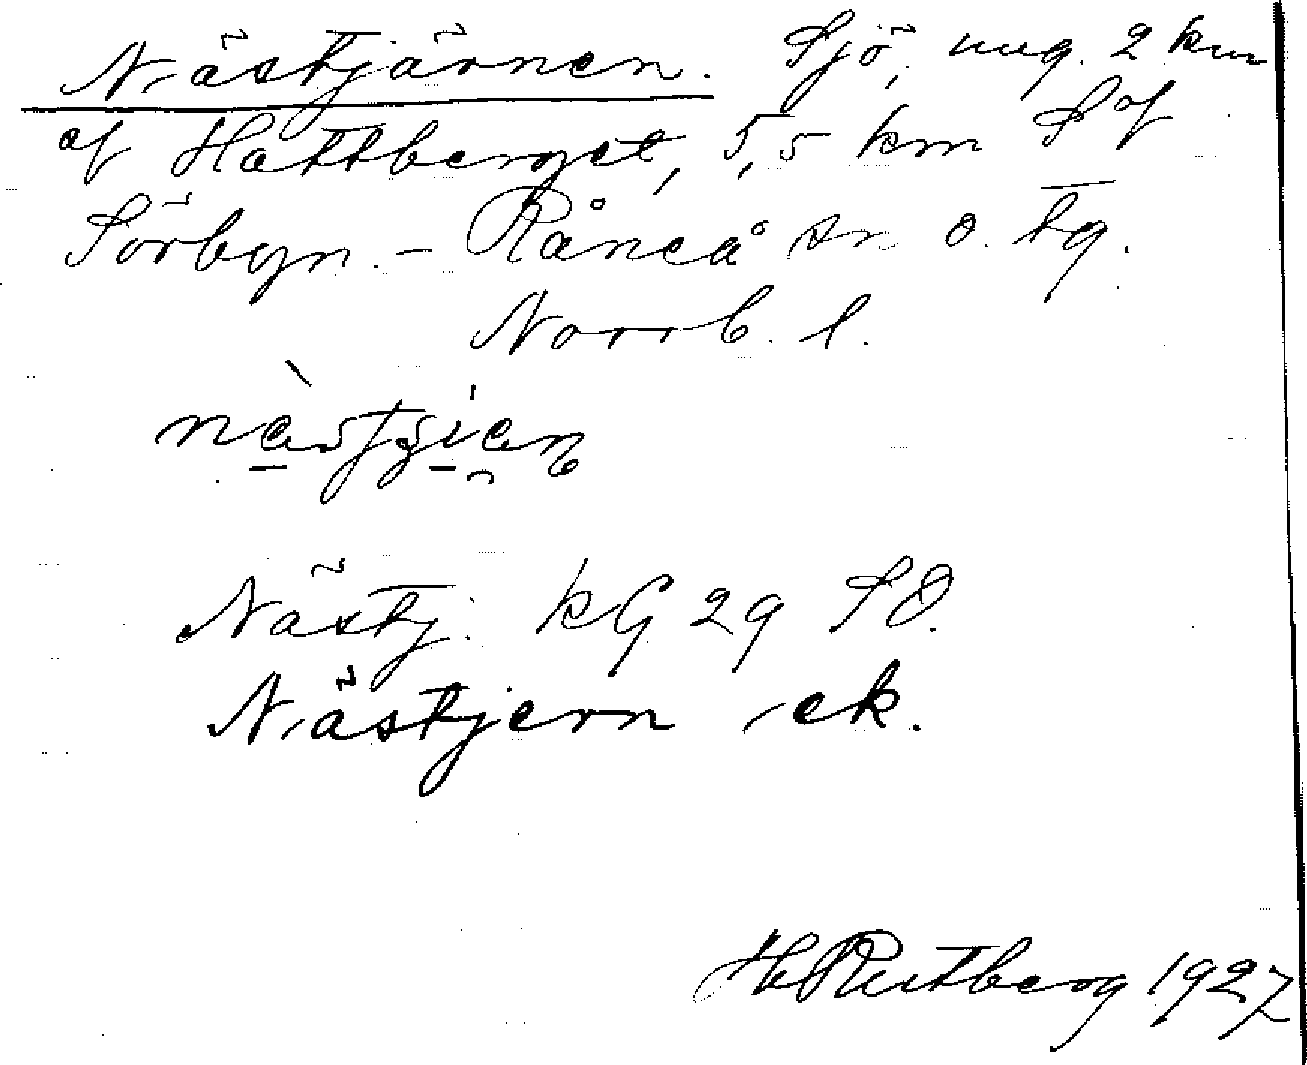 Nästjärnen. Sjö, ung. 2 km
af Hattberget, 5,5 km S af
Sörbyn. – Råneå sn o. tg.
Norrb. l.
Nästj. KG 29 SO.
Nästjern ek.
1927